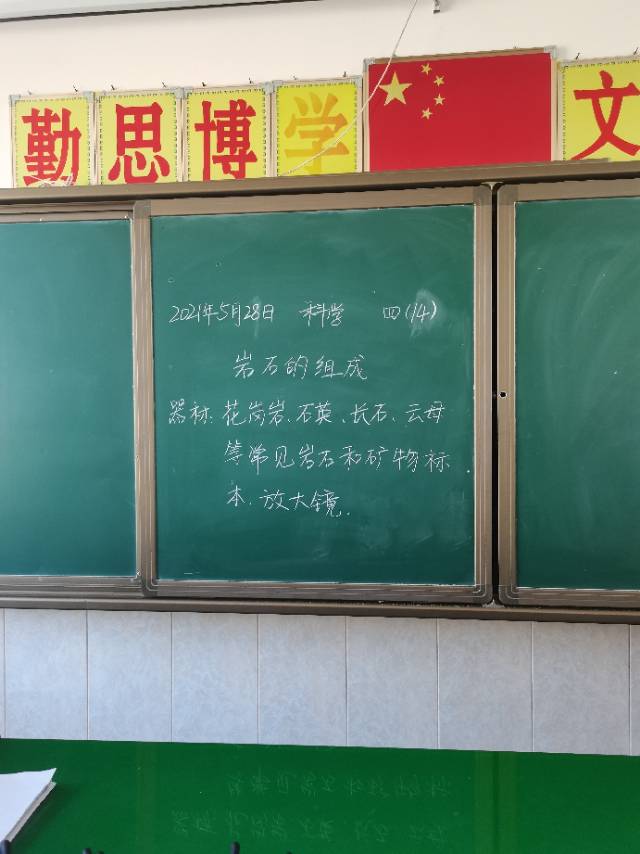 勤思博学 文
2021年5月28日 科学 四(14)
岩石的组成
器材:花岗岩、石英、长石、云母
等常见岩石和矿物标
本、放大镜.